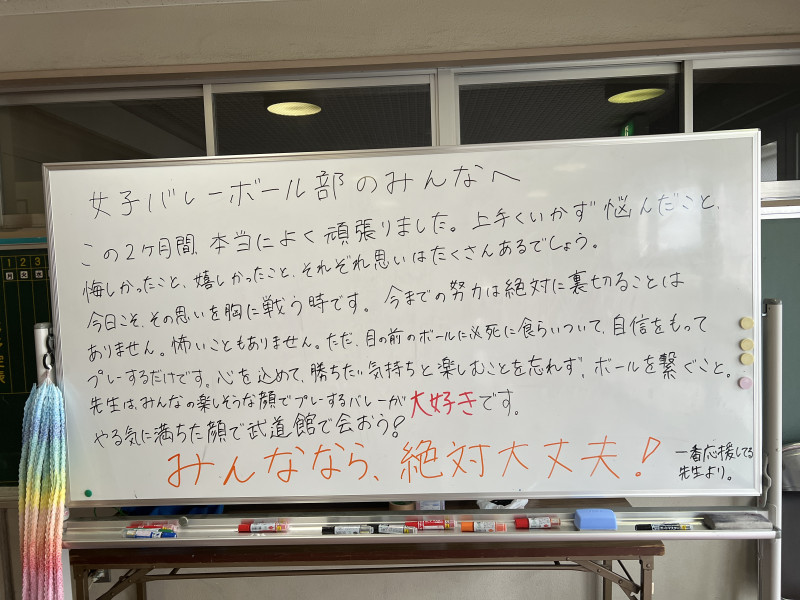 女子バレーボール部のみんなへ
この2ヶ月間、本当によく頑張りました。上手くいかず悩んだこと、
悔しかったこと、嬉しかったこと、それぞれ思いはたくさんあるでしょう。
今日こそ、その思いを胸に戦う時です。今までの努力は絶対に裏切ることは
ありません。怖いこともありません。ただ、目の前のボールに必死に食らいついて、自信をもって
プレーするだけです。心を込めて、勝ちたい気持ちと楽しむことを忘れず、ボールを繋ぐこと。
先生は、みんなの楽しそうな顔でプレーするバレーが大好きです。
やる気に満ちた顔で武道館で会おう?
みんななら、絶対大丈夫!
一番応援してる
先生より。
1 2 3